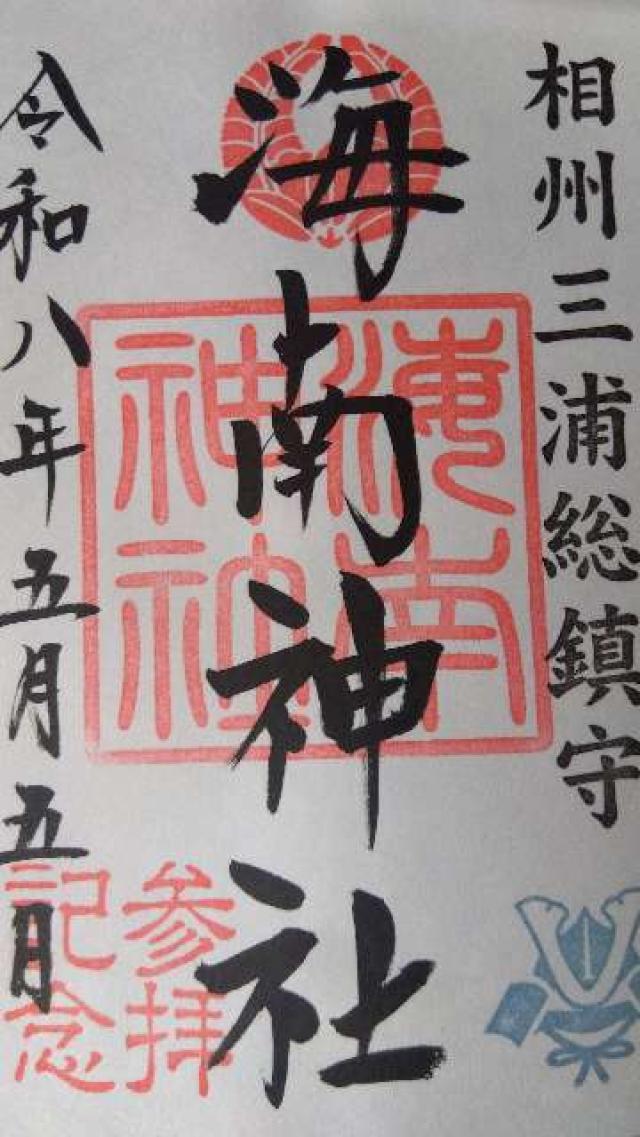 相州三浦総鎮守
海南神社
海南神社
参拝記念
令和八年五月五日